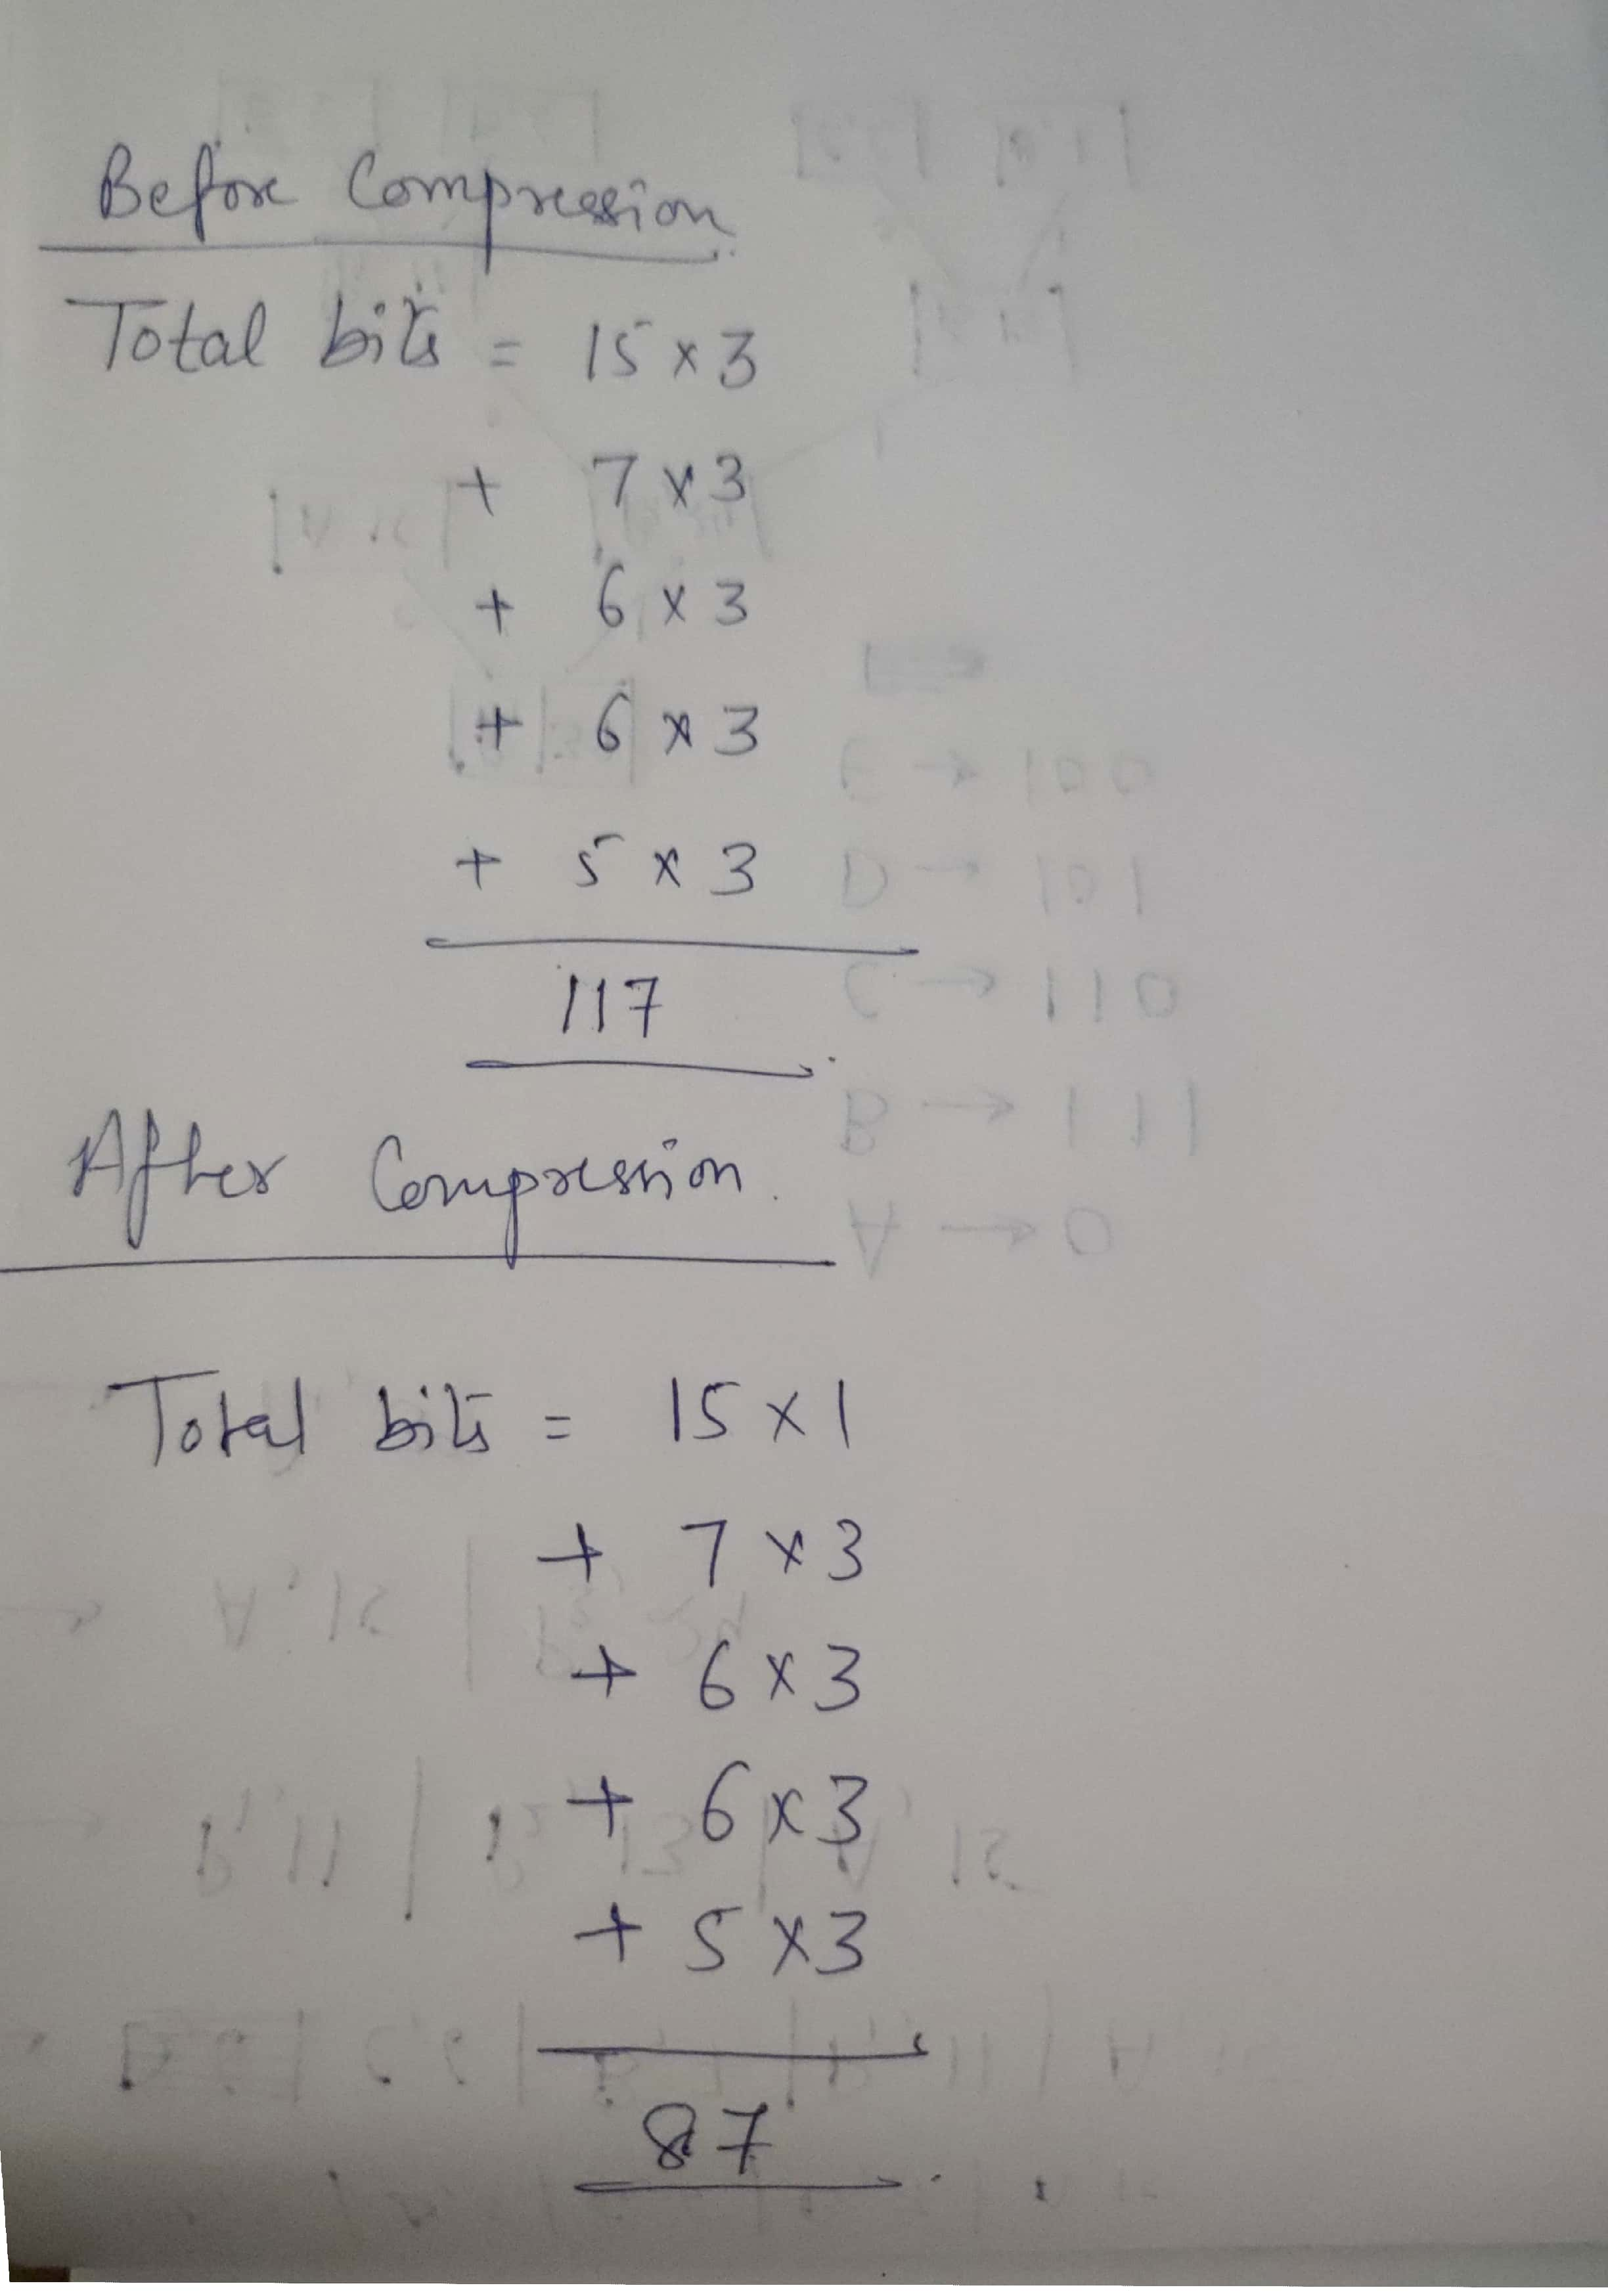 Before Compression
Total bits = 15 x 3
+ 7 x 3
+ 6 x 3
+ 6 x 3
+ 5 x 3
117
After Compression.
Total bits = 15 x 1
+ 7 x 3
+ 6 x 3
+ 6 x 3
+ 5 x 3
87